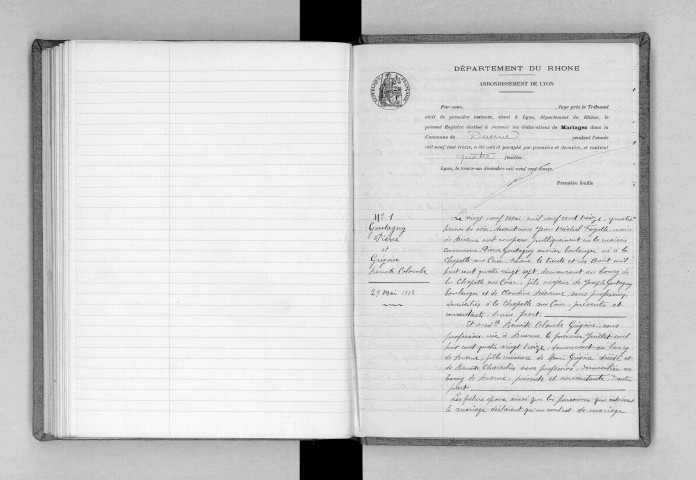 DÉPARTEMENT DU RHONE
ARRONDISSEMENT DE LYON
Par nous, Juge près le Tribunal
civil de première instance, séant à Lyon, département du Rhône, le
présent Registre destiné à recevoir les déclarations de Mariages dans la
Commune de Duerne pendant l'année
mil neuf cent treize, a été coté et paraphé par première et dernière, et contient
quatre feuillets.
Lyon, le trente-un décembre mil neuf cent douze.
Première feuille
N° 1
Goutagny
Pierre
et
Grégoire
Benoite Colombe
29 Mai 1913
Le vingt neuf Mai mil neuf cent treize, quatre
heures du soir, devant nous Jean Michel Fayolle, maire
de Duerne ont comparu publiquement en la maison
commune Pierre Goutagny ouvrier boulanger né à la
Chapelle sur Coise, Rhône le trente et un Août mil
huit cent quatre vingt sept, demeurant au bourg de
la Chapelle sur Coise, fils majeur de Joseph Goutagny
boulanger et de Claudine sans profession,
domiciliés à la Chapelle sur Coise, présents et
consentants d'une part
Et Benoite Colombe Grégoire, sans
profession née à Duerne le premier Juillet mil
huit cent quatre vingt treize, demeurant au bourg
de Duerne, fille mineure de Grégoire décédé et
de Benoite sans profession, domiciliée au
bourg de Duerne présente et consentante d'autre
part
Les futurs époux ainsi que les personnes qui autorisent
le mariage déclarent qu'un contrat de mariage